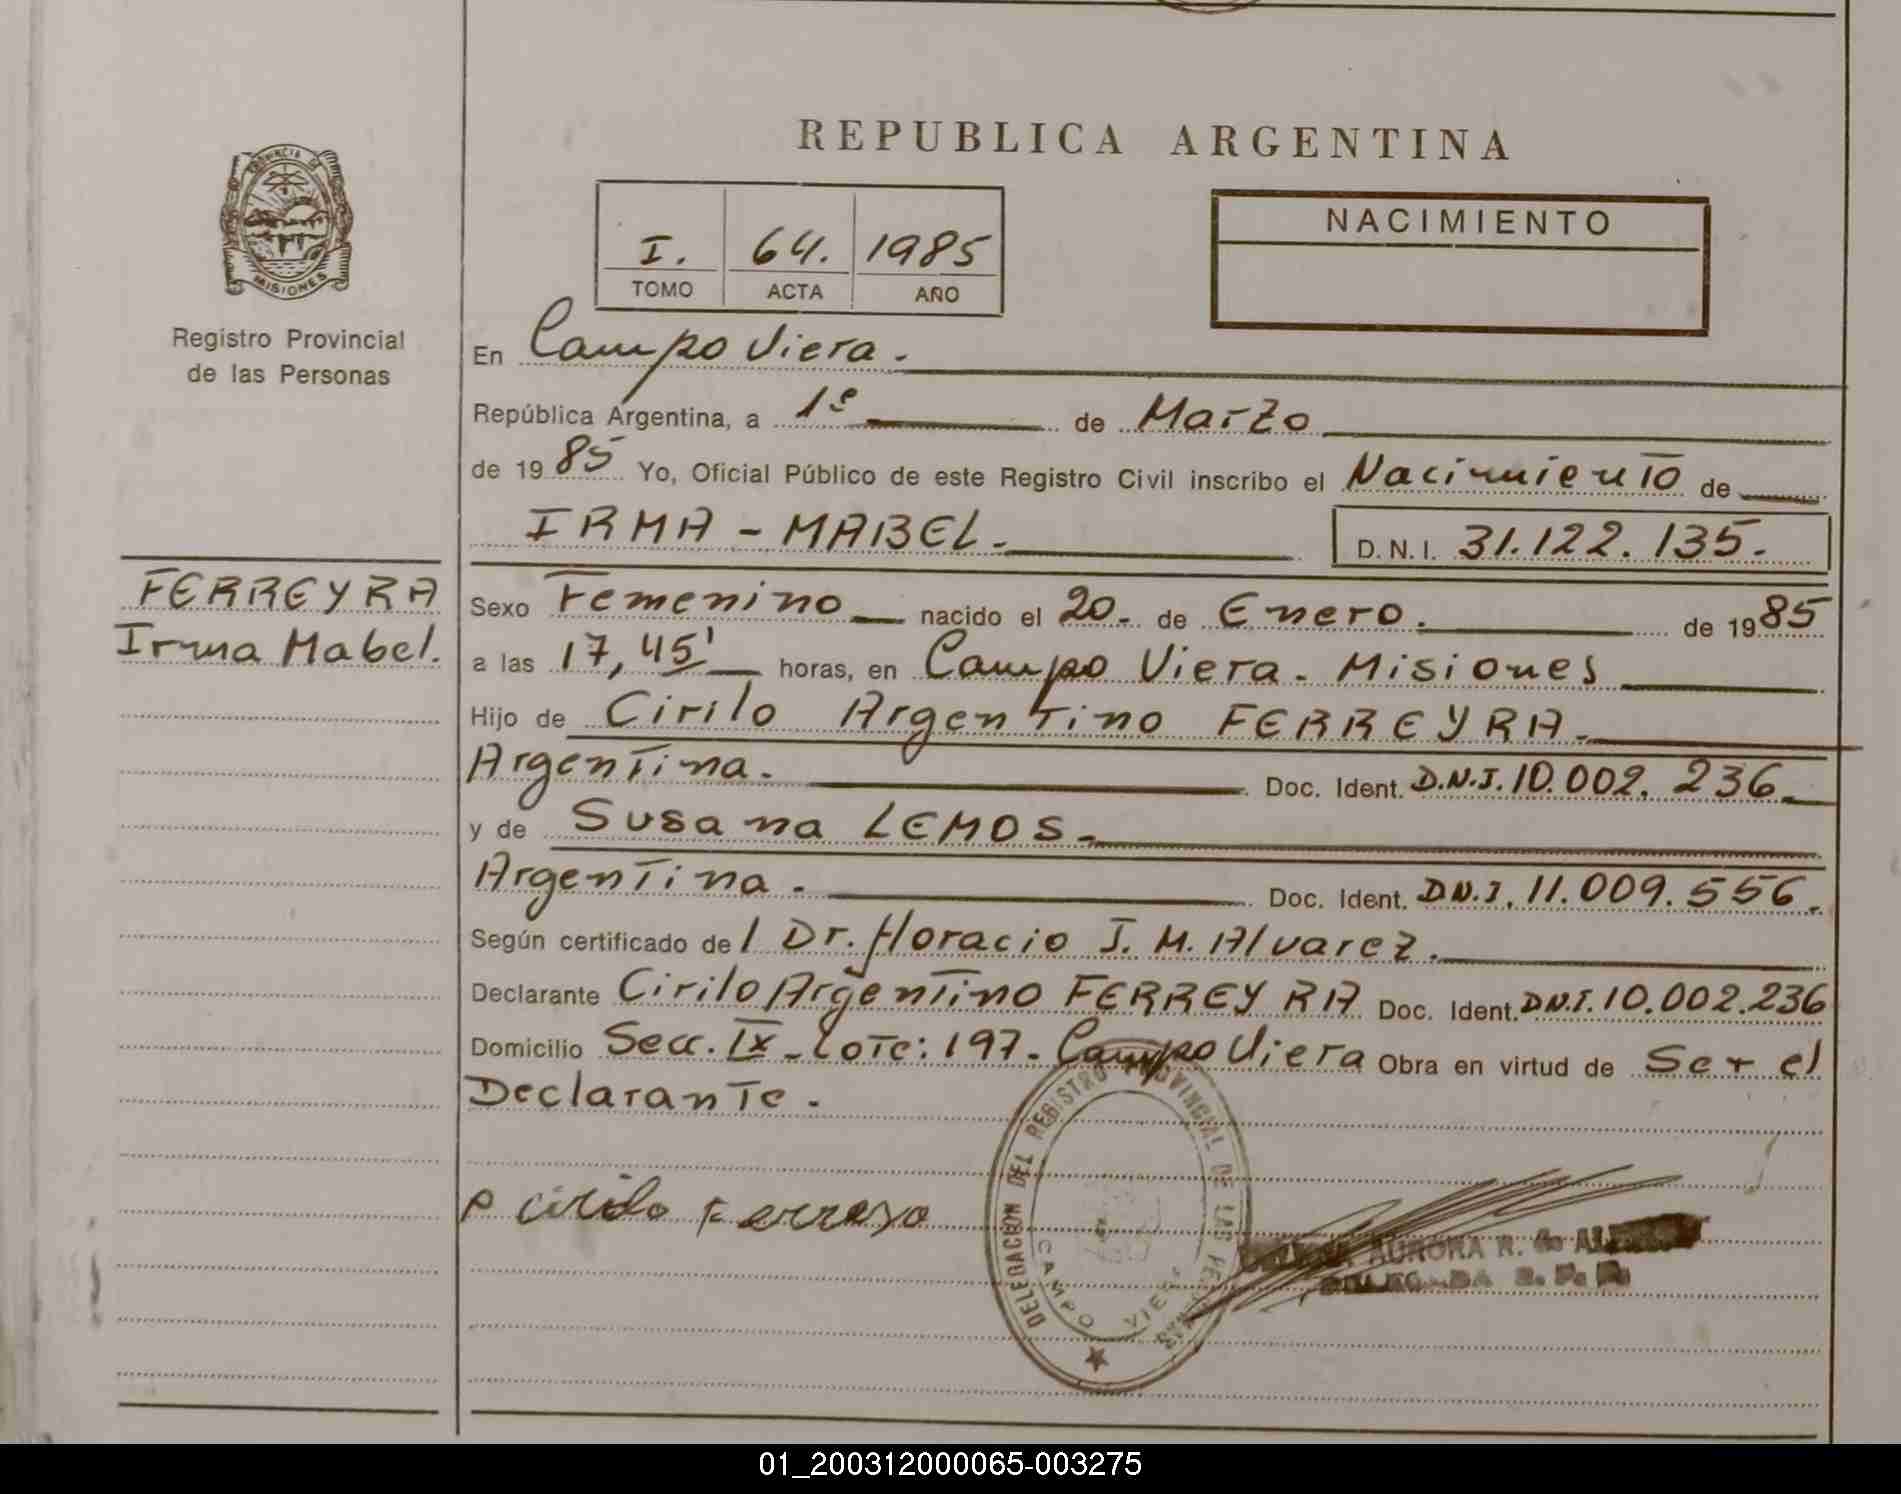 REPUBLICA ARGENTINA
PROVINCIA DE
MISIONES
Registro Provincial
de las Personas
I. 64. 1985
TOMO ACTA AÑO
NACIMIENTO
En Campo Viera.
República Argentina, a 1º de Marzo
de 1985 Yo, Oficial Público de este Registro Civil inscribo el Nacimiento de
IRMA - MABEL. D.N.I. 31.122.135.
FERREYRA
Irma Mabel.
Sexo Femenino nacido el 20. de Enero. de 1985
a las 17,45' horas, en Campo Viera. Misiones
Hijo de Cirilo Argentino FERREYRA.
Argentina. Doc. Ident. D.N.I. 10.002.236.
y de Susana LEMOS.
Argentina. Doc. Ident. D.N.I. 11.009.556.
Según certificado del Dr. Horacio J. M. Alvarez.
Declarante Cirilo Argentino FERREYRA Doc. Ident. D.N.I. 10.002.236
Domicilio Secc. IX. Lote: 197. Campo Viera Obra en virtud de Ser el
Declarante.
DELEGACION DEL REGISTRO PROVINCIAL DE LAS PERSONAS
CAMPO VIERA
cirilo Ferreyra
AURORA R. de
DELEGADA R. P. P.
01_200312000065-003275